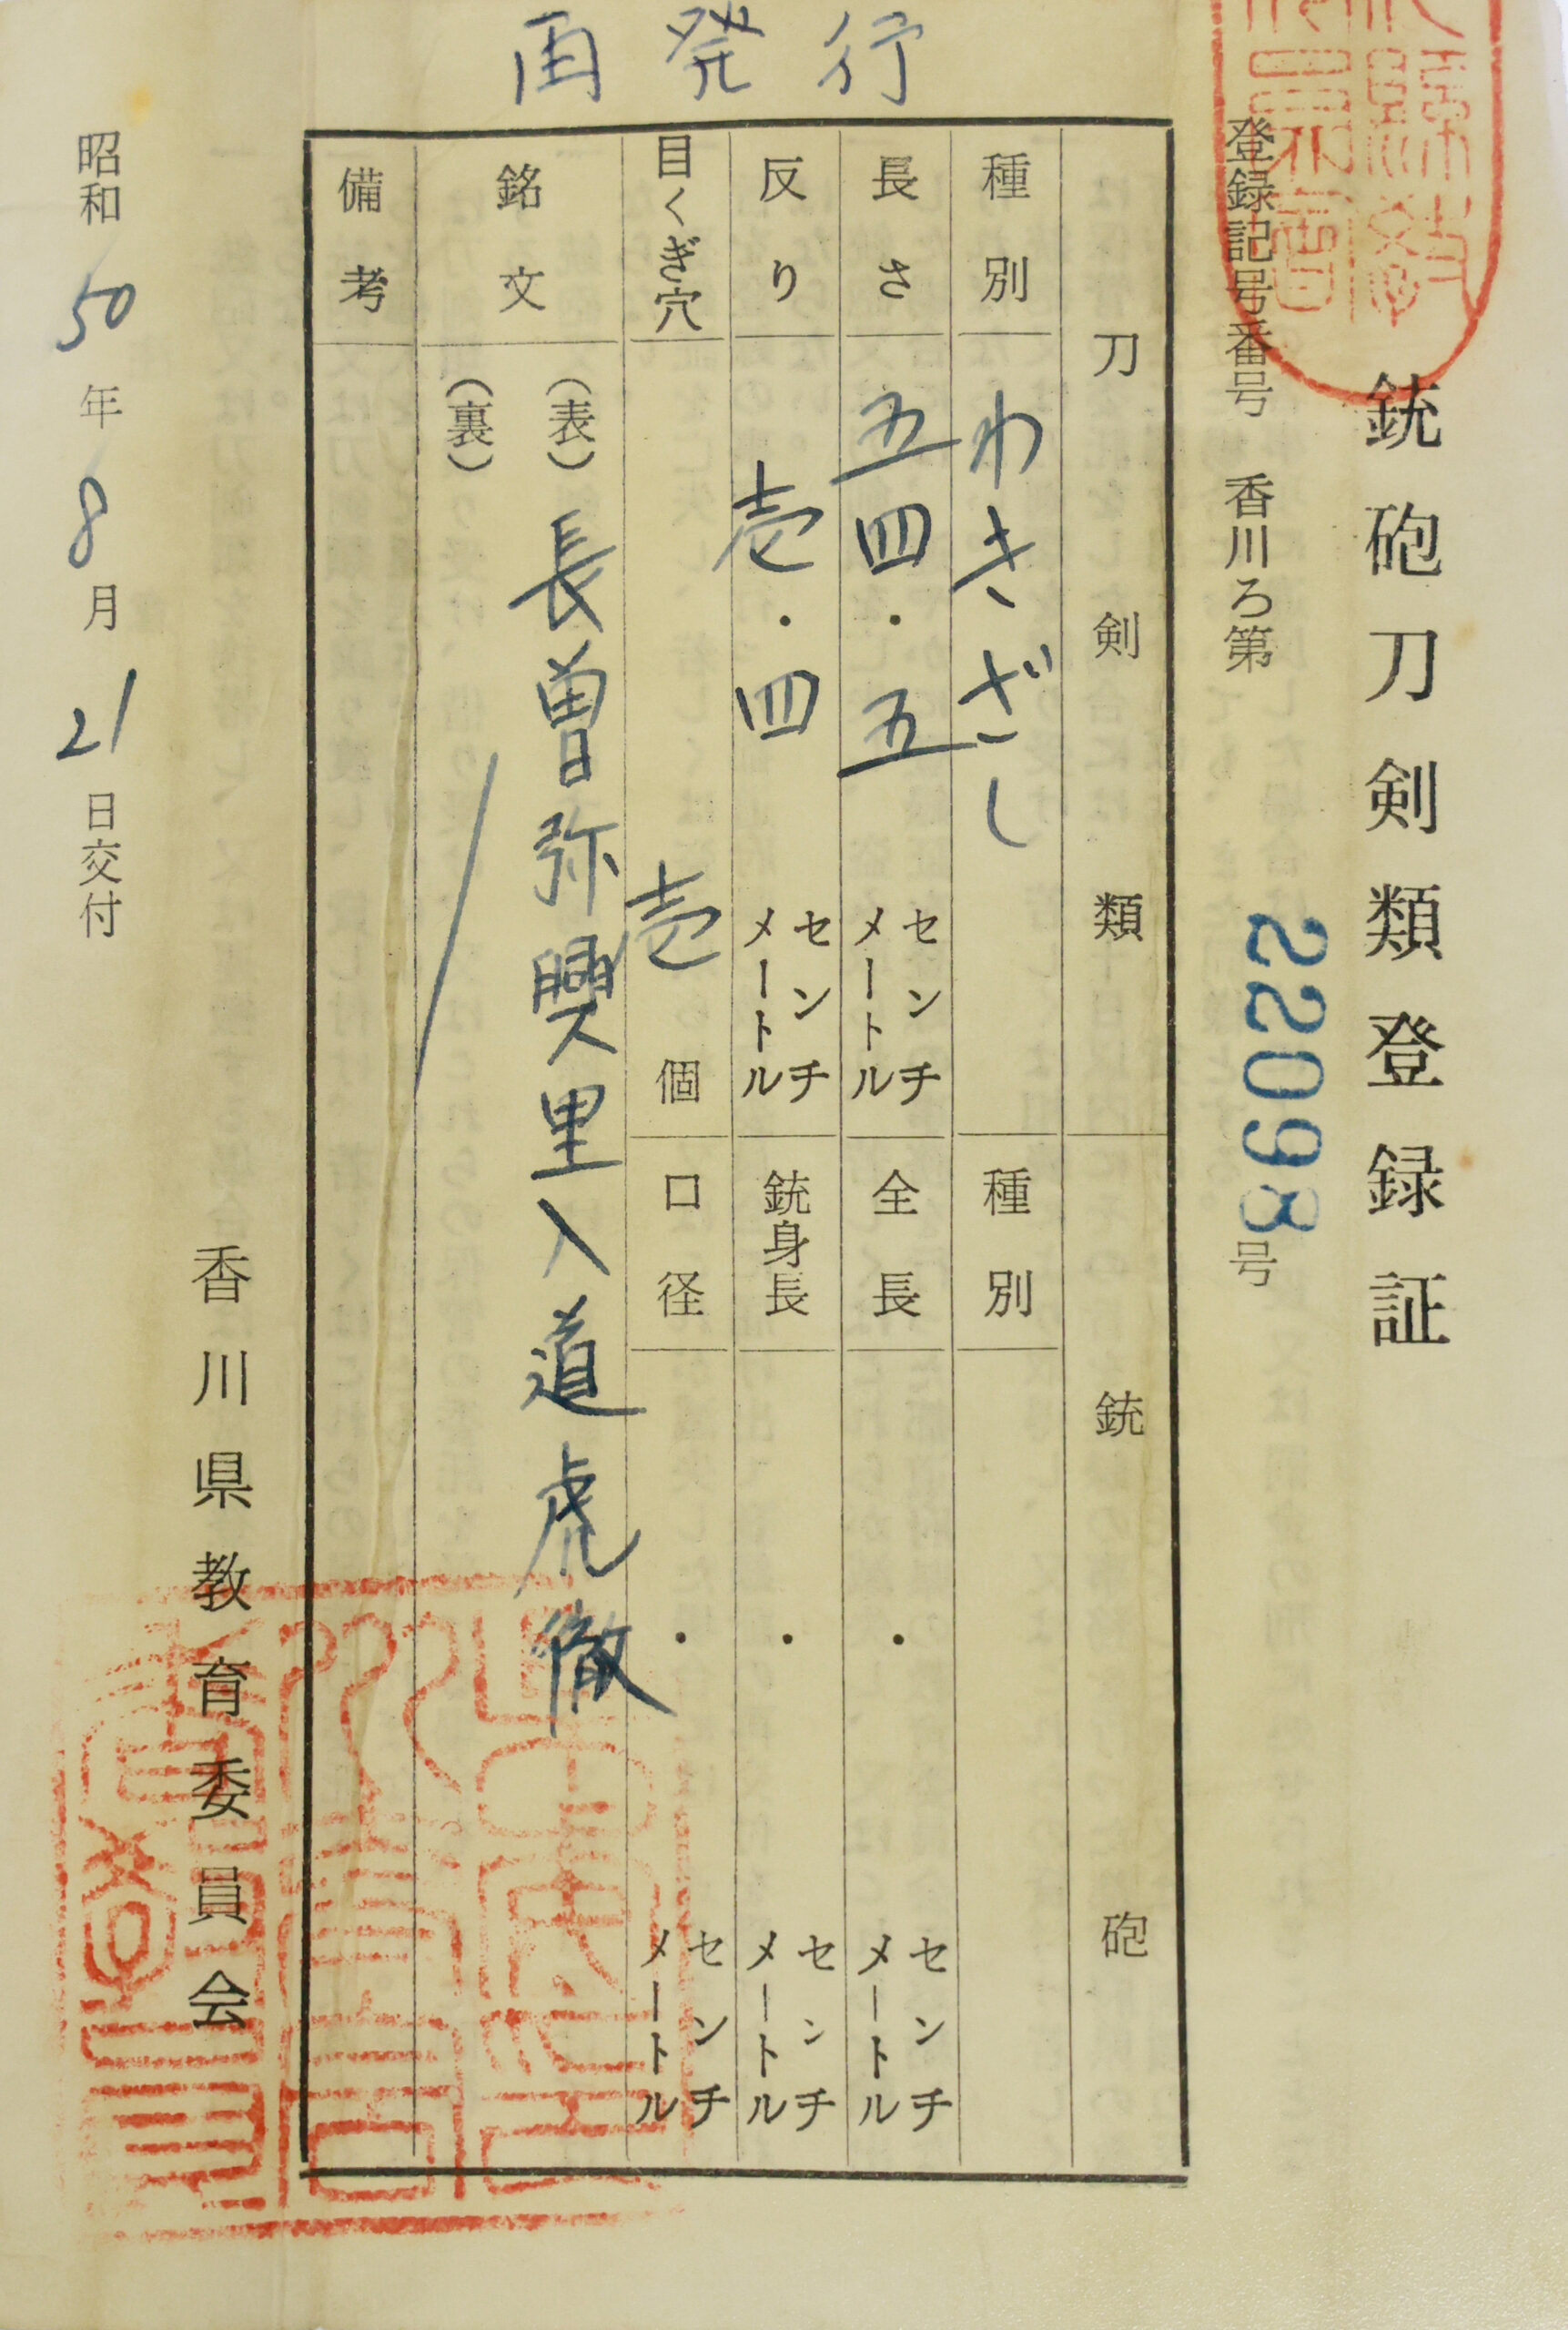 再発行
銃砲刀剣類登録証
登録記号番号 香川ろ第 22098 号
刀剣類
種別 わきざし
長さ 五四・五 センチメートル
反り 壱・四 センチメートル
目くぎ穴 壱 個
銃砲
種別
全長 ・ センチメートル
銃身長 ・ センチメートル
口径 ・ センチメートル
銘文
(表) 長曽弥興里入道虎徹
(裏)
備考
昭和 50 年 8 月 21 日交付
香川県教育委員会